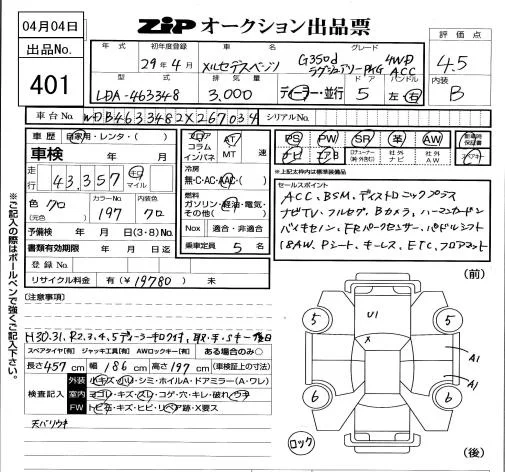 04月04日
ZIP オークション出品票
出品No.
401
年式
初年度登録 29年4月
車名 メルセデスベンツ
グレード G350d 4WD
ラグジュアリーPKG ACC
評価点 4.5
内装 B
型式 LDA-463348
排気量 3,000
ディーラー・並行
ドア 5
ハンドル 左・右
車台No. WDB4633482X267034
シリアルNo.
車歴 自家用・レンタ・( )
車検 年 月
走行 43,357 キロ マイル
色 クロ
(元色)
カラーNo. 197
内装色 クロ
予備検 年 月 日(3・8)No.
書類有効期限 年 月 日迄
登録No.
リサイクル料金 有(¥19780)無
フロア コラム インパネ
AT MT 速
冷房
無・C・AC・AAC・( )
燃料
ガソリン・軽油・電気・
その他( )
Nox 適合・非適合
乗車定員 5 名
PS PW SR 革 AW
ナビ エアB
社外ナビ 社外AW
新車時保証書
スペアキー
*上記太枠内は標準装備品
セールスポイント
ACC, BSM, ディストロニックプラス
ナビTV, フルセグ, Bカメラ, ハーマンカードン
バイキセノン, FRパークセンサー, パドルシフト
18AW, Pシート, キーレス, ETC, フロアマット
※ご記入の際はボールペンで強くご記入下さい。
[注意事項]
H30.31, R2,3,4,5ディーラー キロクイチ, 取・手・Sキー 後日
スペアタイヤ[有] ジャッキ工具[有] AWロックキー[有] ある場合のみ○
長さ457cm 幅186cm 高さ197cm(車検証上の寸法)
検査記入
外装 小キズ・ハリ・シミ・ホイルA・ドアミラー(A・ワレ)
室内 ヨゴレ・キズ・スレ・コゲ・穴・キレ・破れ・ウキ
FW トビ石・キズ・ヒビ・リペア跡・X要ス
天バリウキ
(前)
U1
X
5
5
A1
A1
6
6
ロック
(後)